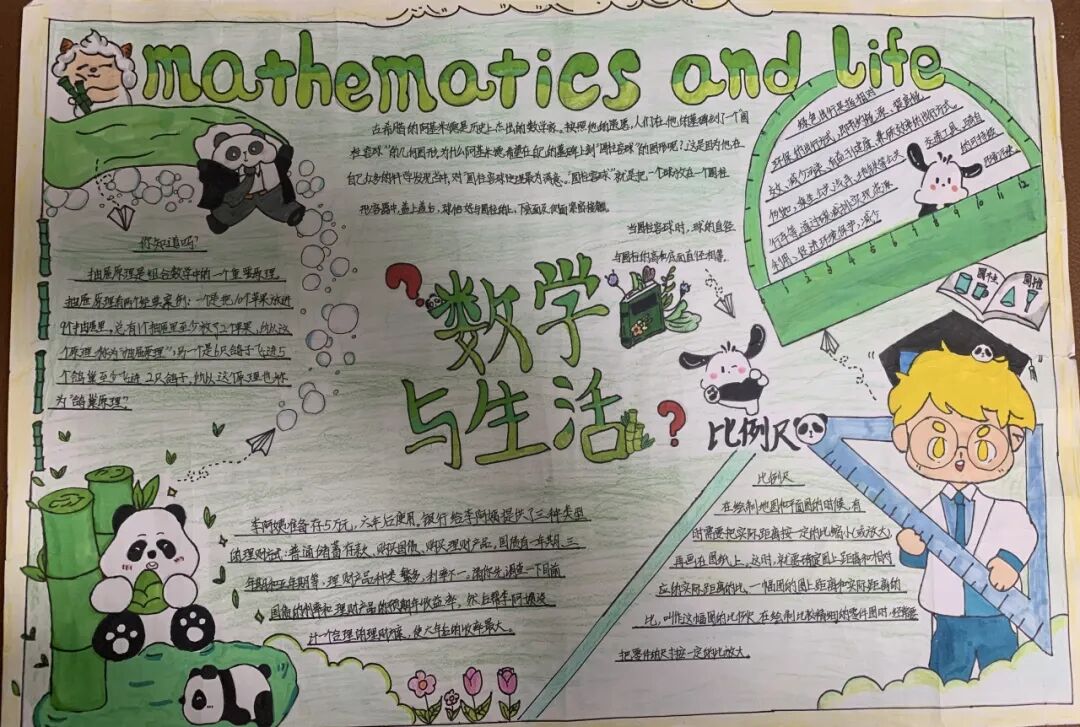 mathematics and Life
古希腊的阿基米德是历史上杰出的数学家。按照他的遗愿,人们在他的墓碑刻了一个"圆
柱容球"的几何图形。为什么阿基米德希望在自己的墓碑上刻"圆柱容球"的图形呢?这是因为他在
自己众多的科学发现当中,对"圆柱容球定理最为满意。"圆柱容球"就是把一个球放在一个圆柱
形容器中,盖上盖后,球恰好与圆柱的上、下底面及侧面紧密接触。
当圆柱容球时,球的直径
与圆柱的高和底面直径相等。
绿色出行是指相对
环保的出行方式,即节约能源、提高能
效、减少污染、有益于健康、兼顾效率的出行方式。
交通工具、项目
的可持续
行车等,通过碳减排实现
利用、促进环境保护,减少
1 2 3 4 5 6 7 8 9 10 11 12
圆柱 圆锥
你知道吗?
抽屉原理是组合数学中的一个重要原理
抽屉原理有两个经典案例:一个是把10个苹果放进
9个抽屉里,总有1个抽屉里至少放了2个苹果,所以这
个原理称为"抽屉原理";另一个是6只鸽子飞进5
个鸽巢至少飞进2只鸽子,所以这个原理也称
为"鸽巢原理"。
数学
与生活
? ?
比例尺
比例尺
在绘制地图和平面图的时候,有
时需要把实际距离按一定的比缩小(或放大),
再画在图纸上,这时,就要确定图上距离和相对
应的实际距离的比、一幅图的图上距离和实际距离的
比,叫作这幅图的比例尺。在绘制比较精细的零件图时,经常要
把零件的尺寸按一定的比放大。
李阿姨准备存5万元,六年后使用。银行给李阿姨提供了三种类型
的理财方式:普通储蓄存款、购买国债、购买理财产品,国债有一年期、三
年期和五年期等,理财产品种类繁多,利率不一,请你先调查一下目前
国债的利率和理财产品的预期年收益率,然后帮李阿姨设
计一个合理的理财方案,使六年后的收益最大。